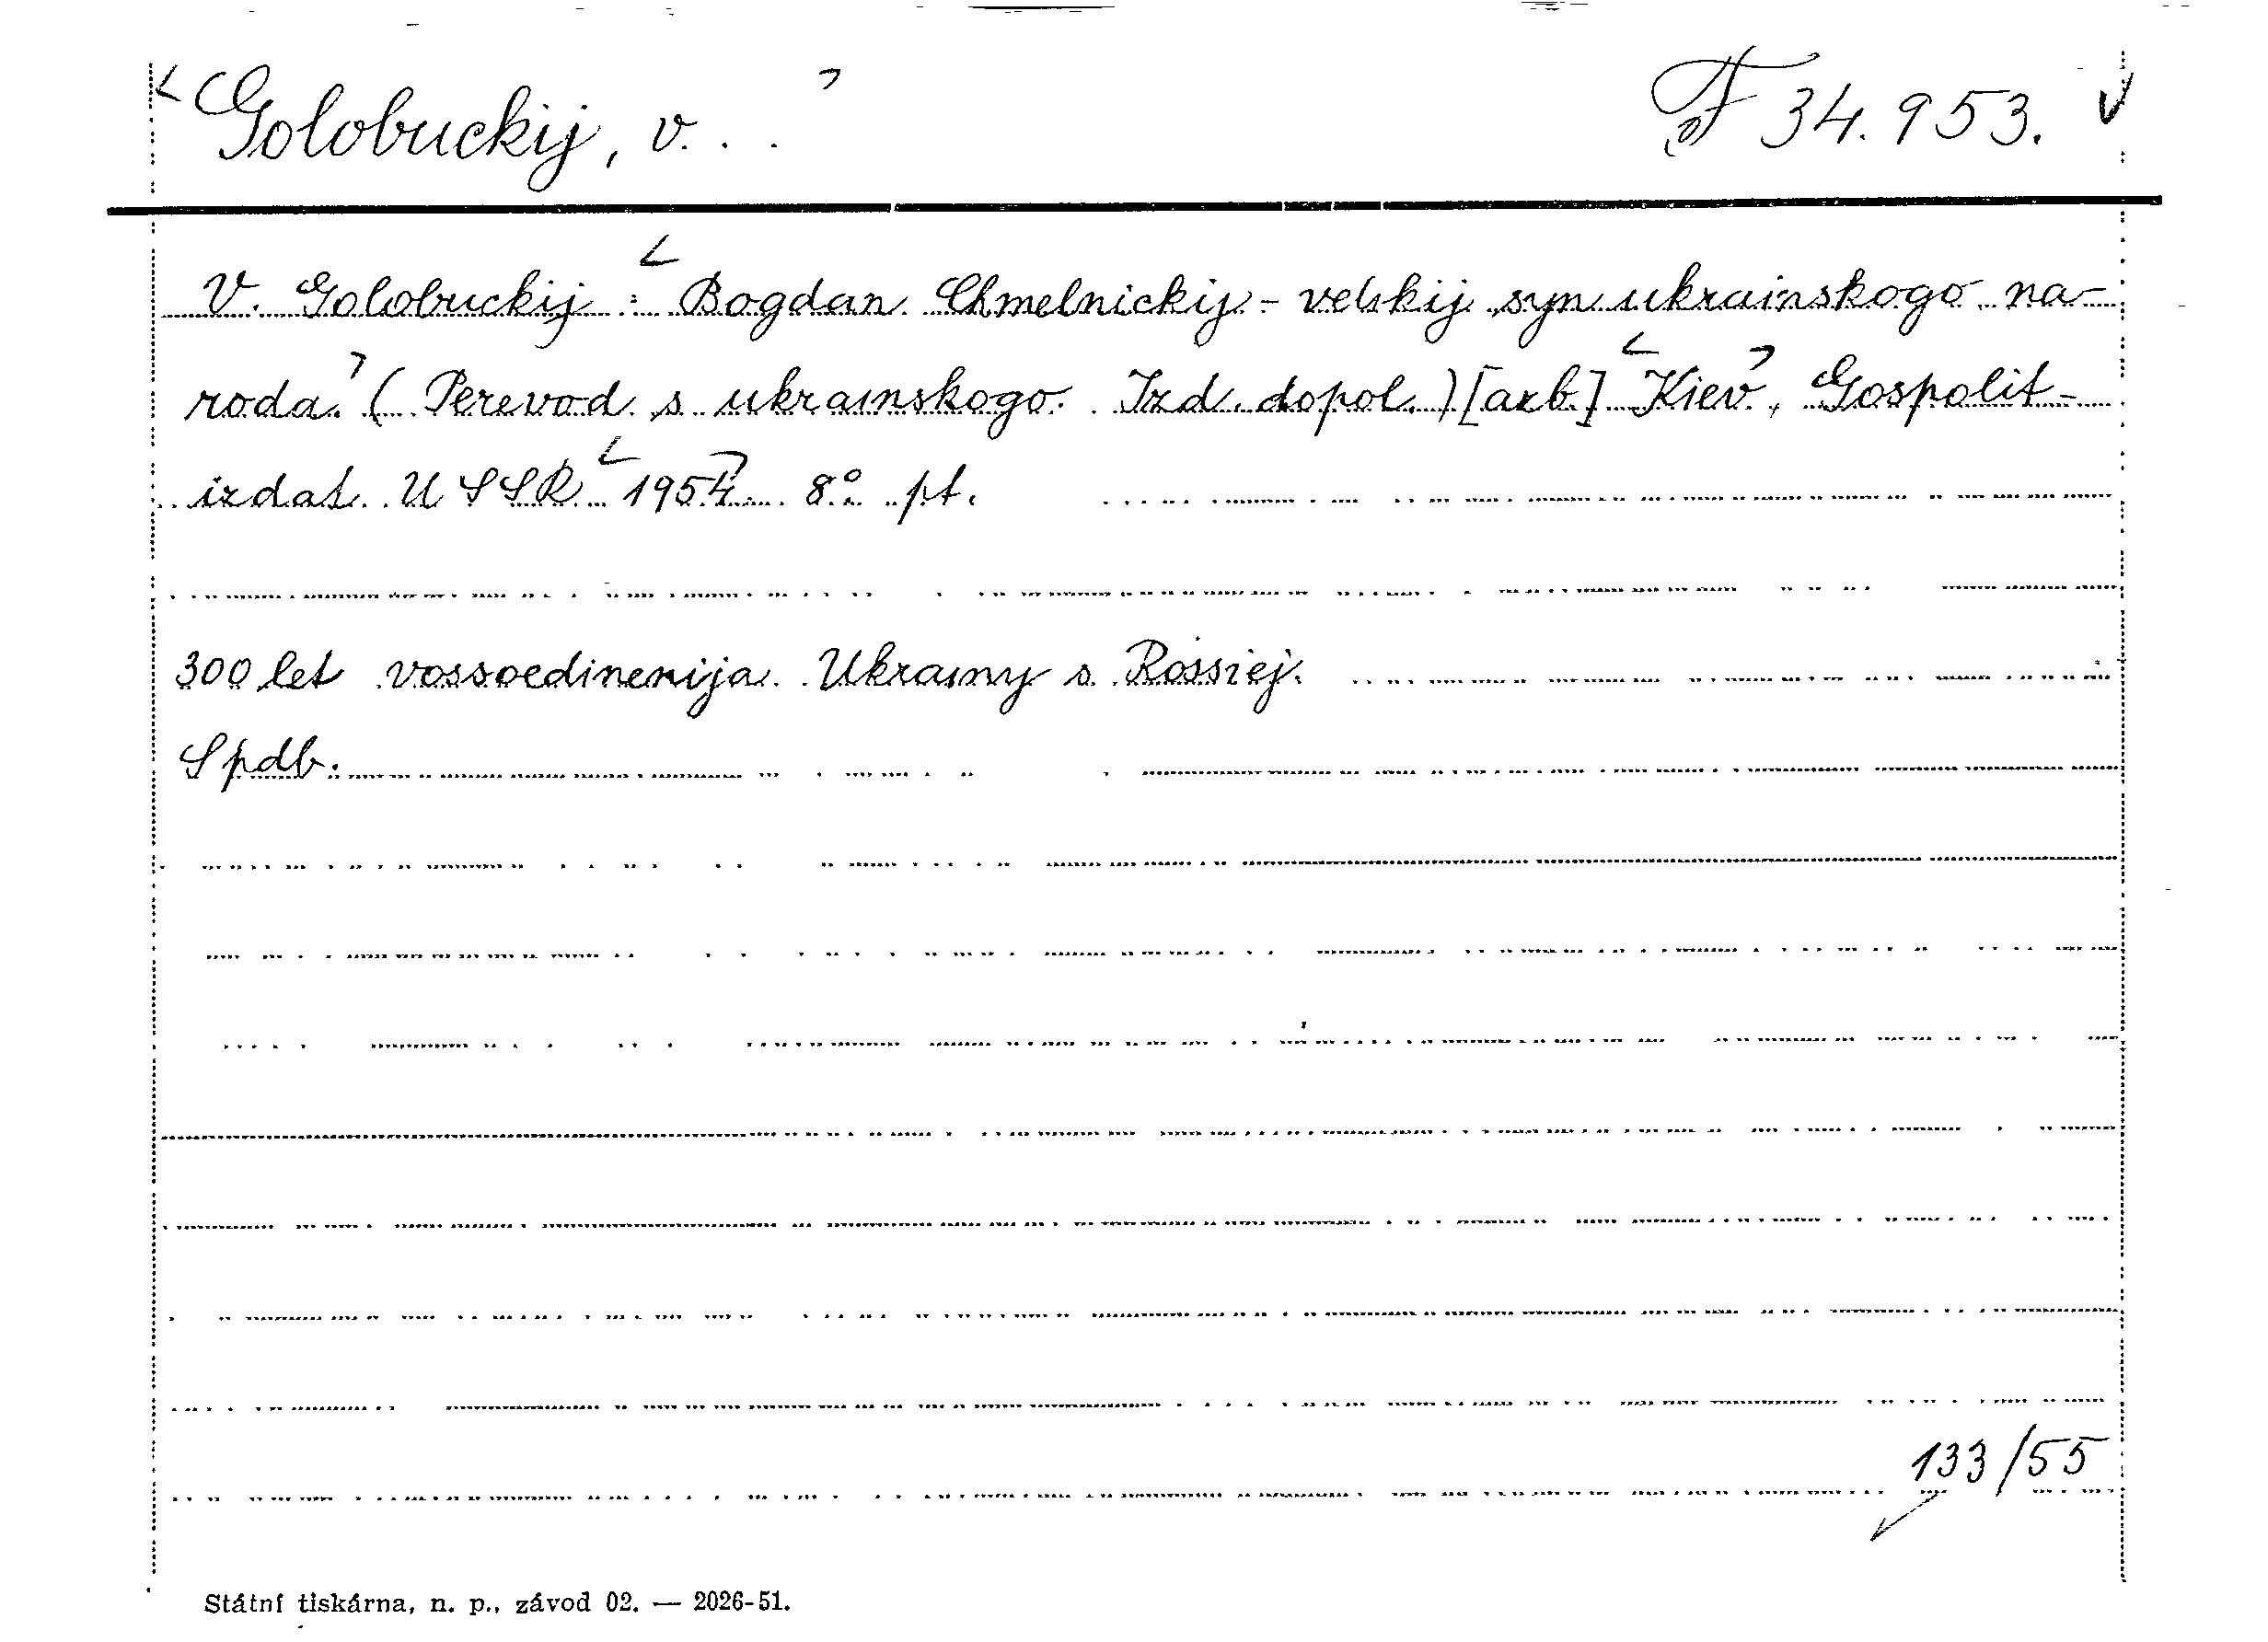 Golobuckij, V. . .
F 34.953.
V. Golobuckij : Bogdan Chmelnickij - velikij syn ukrainskogo na-
roda. (Perevod s ukrainskogo. Izd. dopol.) [azb.] Kiev, Gospolit-
izdat. USSR 1954. 8° pt.
300 let vossoedinenija Ukrainy s Rossiej.
Spdb.
133/55
Státní tiskárna, n. p., závod 02. — 2026-51.